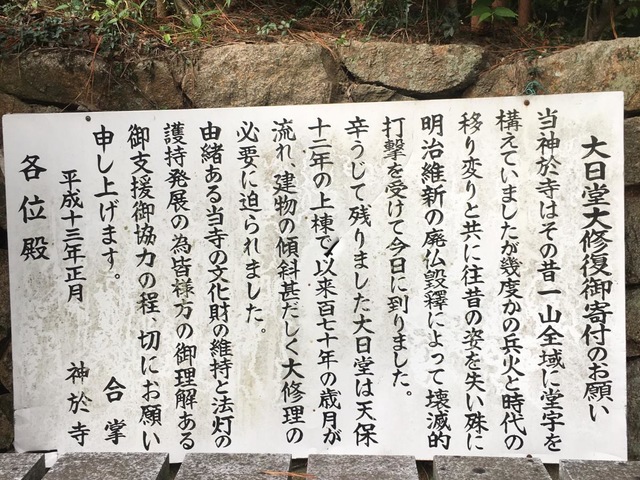 大日堂大修復御寄付のお願い
当神於寺はその昔一山全域に堂宇を
構えていましたが幾度かの兵火と時代の
移り変りと共に往昔の姿を失い殊に
明治維新の廃仏毀釋によって壊滅的
打撃を受けて今日に到りました。
辛うじて残りました大日堂は天保
十二年の上棟で以来百七十年の歳月が
流れ、建物の傾斜甚だしく大修理の
必要に迫られました。
由緒ある当寺の文化財の維持と法灯の
護持発展の為皆様方の御理解ある
御支援御協力の程、切にお願い
申し上げます。 合掌
平成十三年正月 神於寺
各位殿